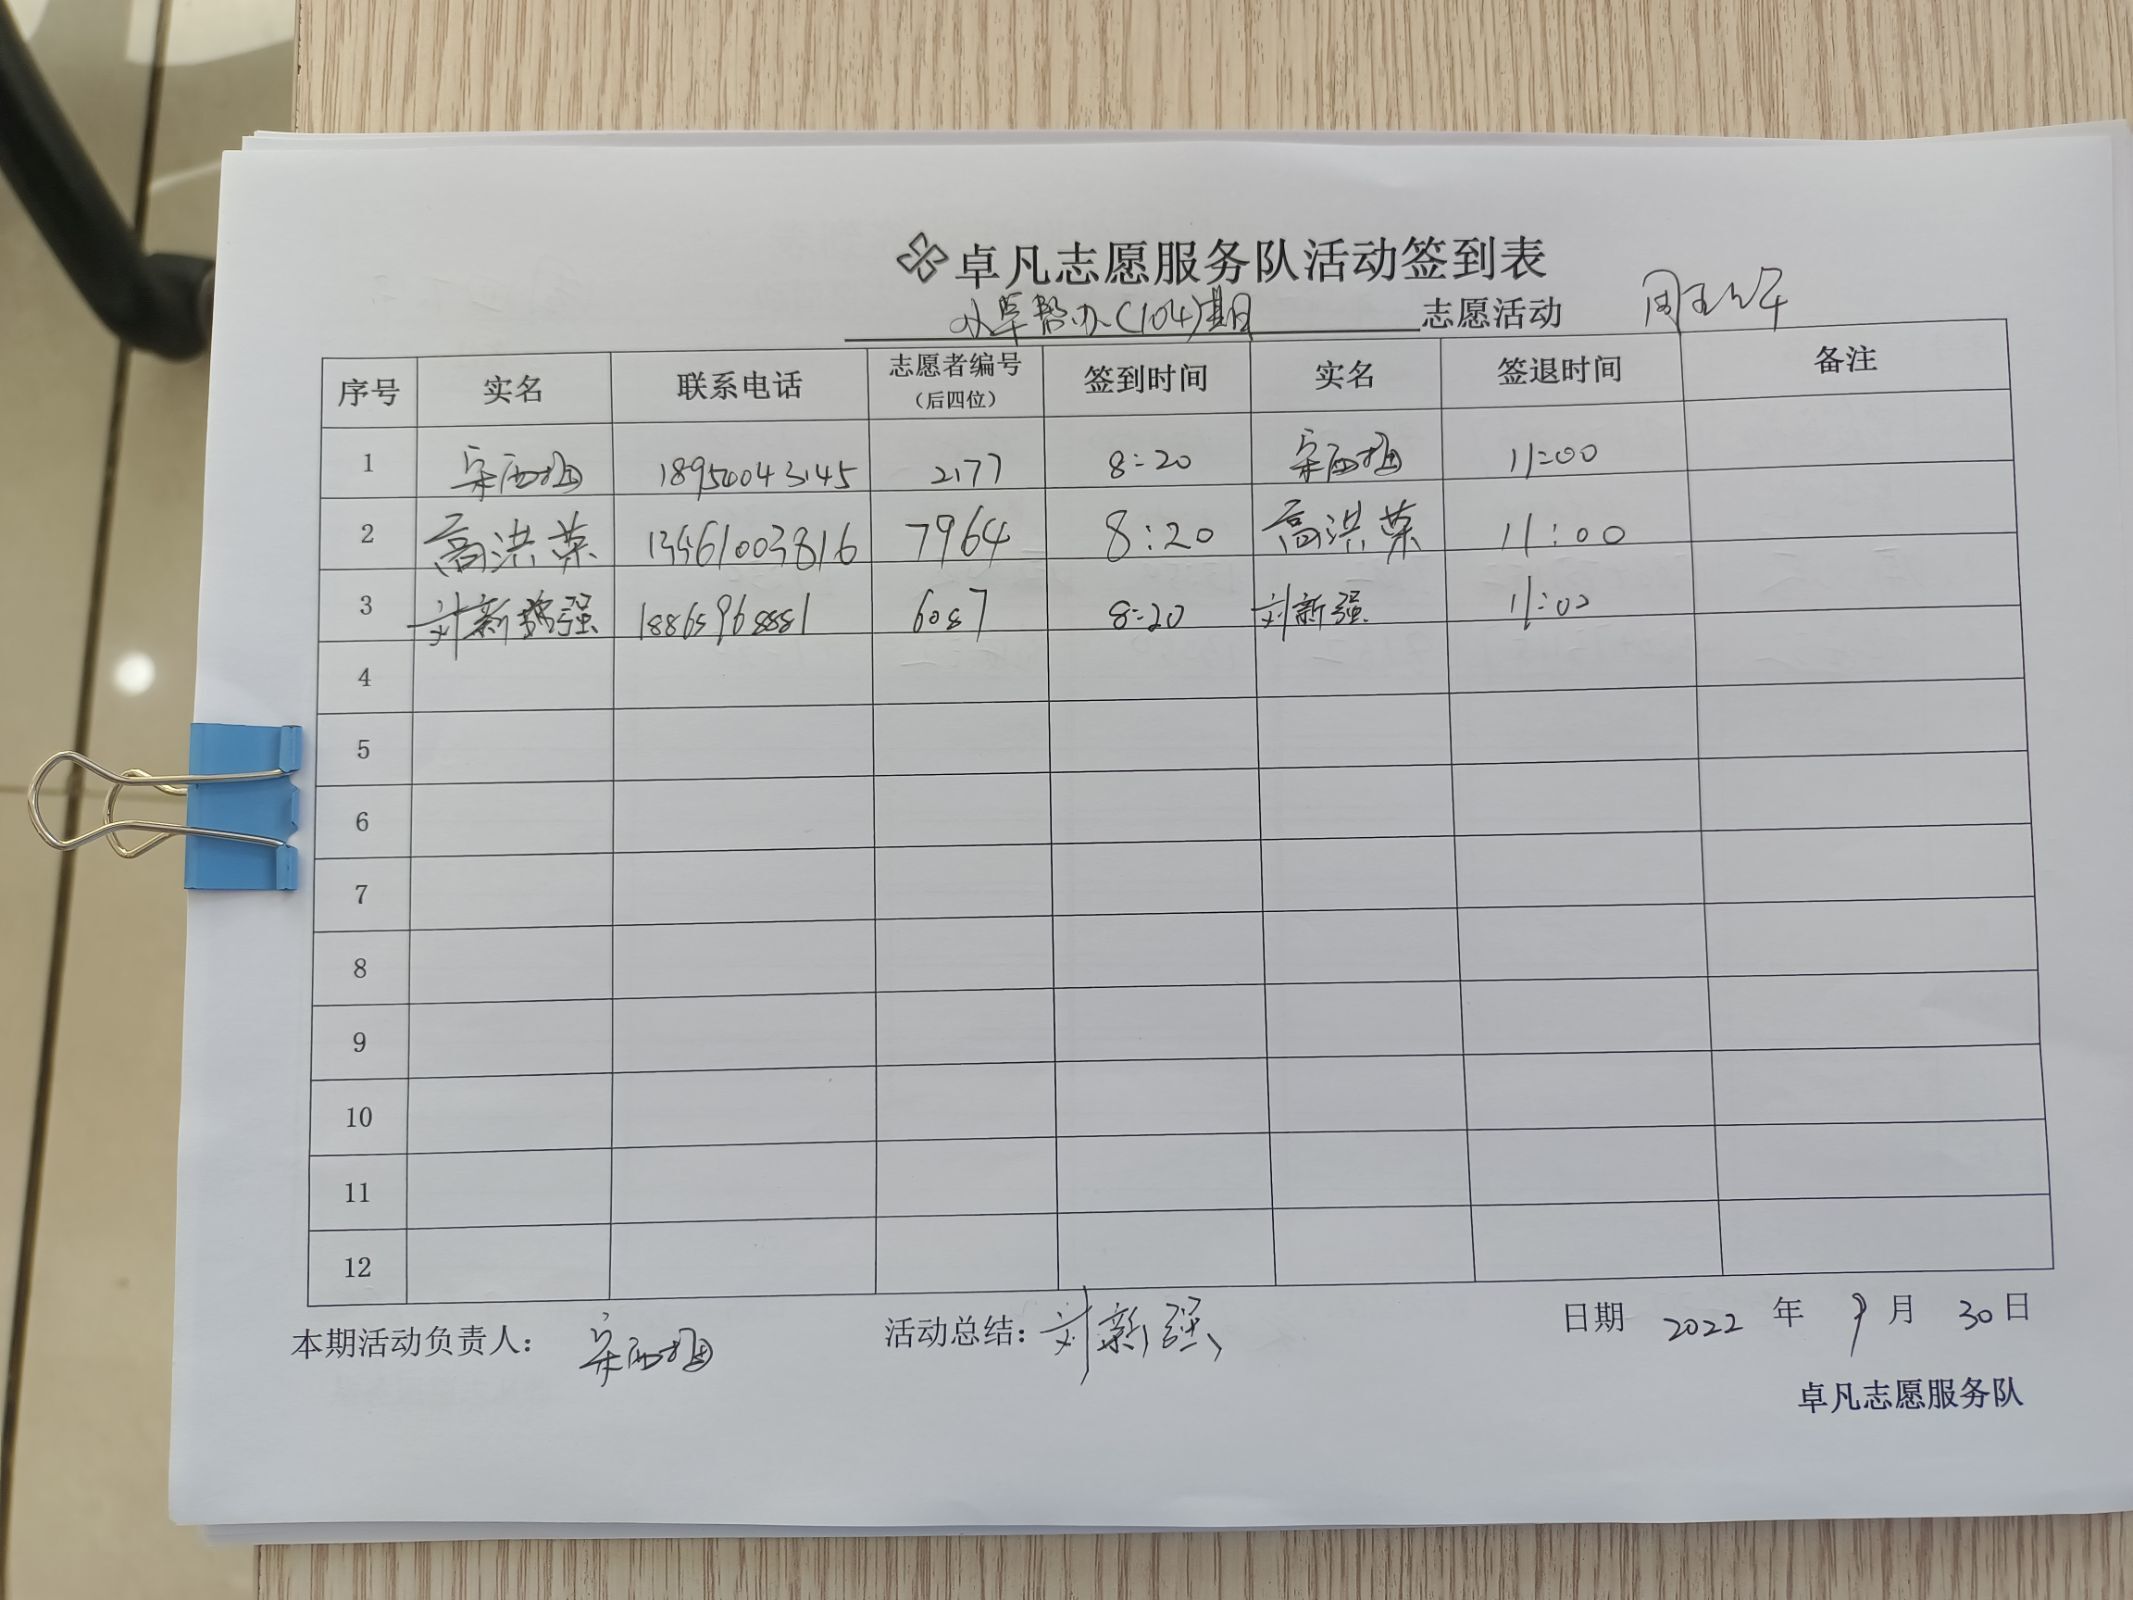 卓凡志愿服务队活动签到表
小草帮办(104)期 志愿活动 周五上午
序号 实名 联系电话 志愿者编号（后四位） 签到时间 实名 签退时间 备注
1 18950043145 2177 8:20 11:00
2 高洪荣 13561003816 7964 8:20 高洪荣 11:00
3 刘新强 18865968881 6087 8:20 刘新强 11:00
4
5
6
7
8
9
10
11
12
本期活动负责人： 活动总结：刘新强 日期 2022 年 9 月 30 日
卓凡志愿服务队